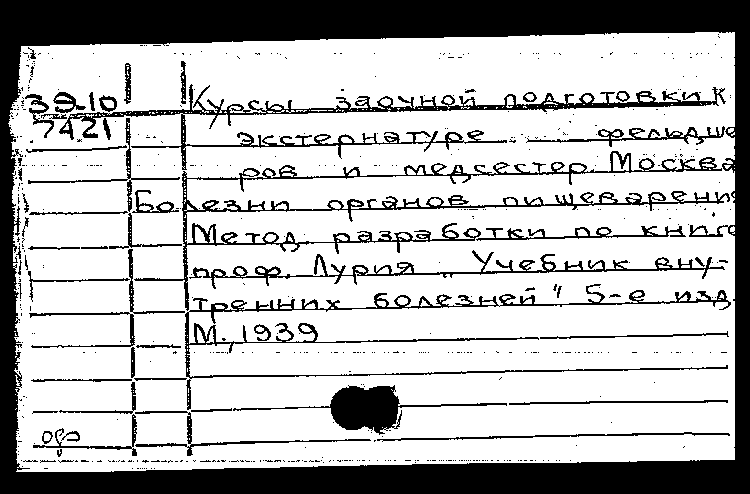 39-10 Курсы заочной подготовки к
7421 экстернатуре фельдше
ров и медсестер. Москва
Болезни органов пищеварени
Метод. разработки по книге
проф. Лурия „Учебник вну-
тренних болезней" 5-е изд.
М., 1939